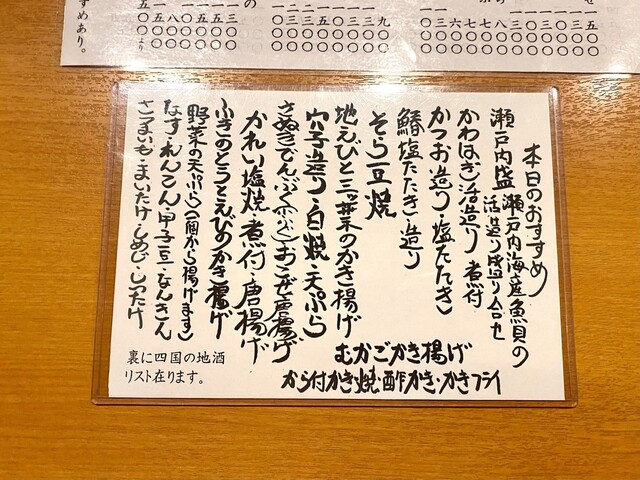 本日のおすすめ
瀬戸内盛 瀬戸内海産魚貝の
活造り盛り合せ
かわはぎ活造り 煮付
かつお造り・塩たたき
鰆塩たたき・造り
そら豆焼
地えびと三ッ葉のかき揚げ
穴子造り・白焼・天ぷら
さぬきでんぶく(ふぐ)おこぜ唐揚げ
かれい塩焼・煮付・唐揚げ
ふきのとうとえびのかき揚げ
野菜の天ぷら(一個から揚げます)
なす・れんこん・甲子豆・なんきん
さつまいも・まいたけ・しめじ・しいたけ
むかごかき揚げ
から付かき焼・酢かき・かきフライ
裏に四国の地酒
リスト在ります。
すめあり。